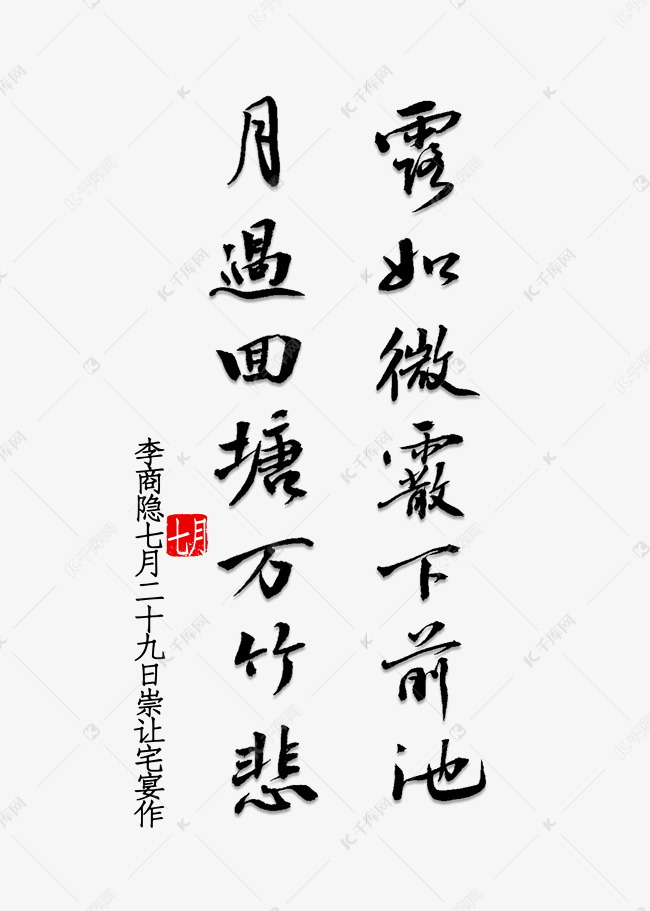 露如微霰下前池
月過回塘万竹悲
七月
李商隐七月二十九日崇让宅宴作
千库网